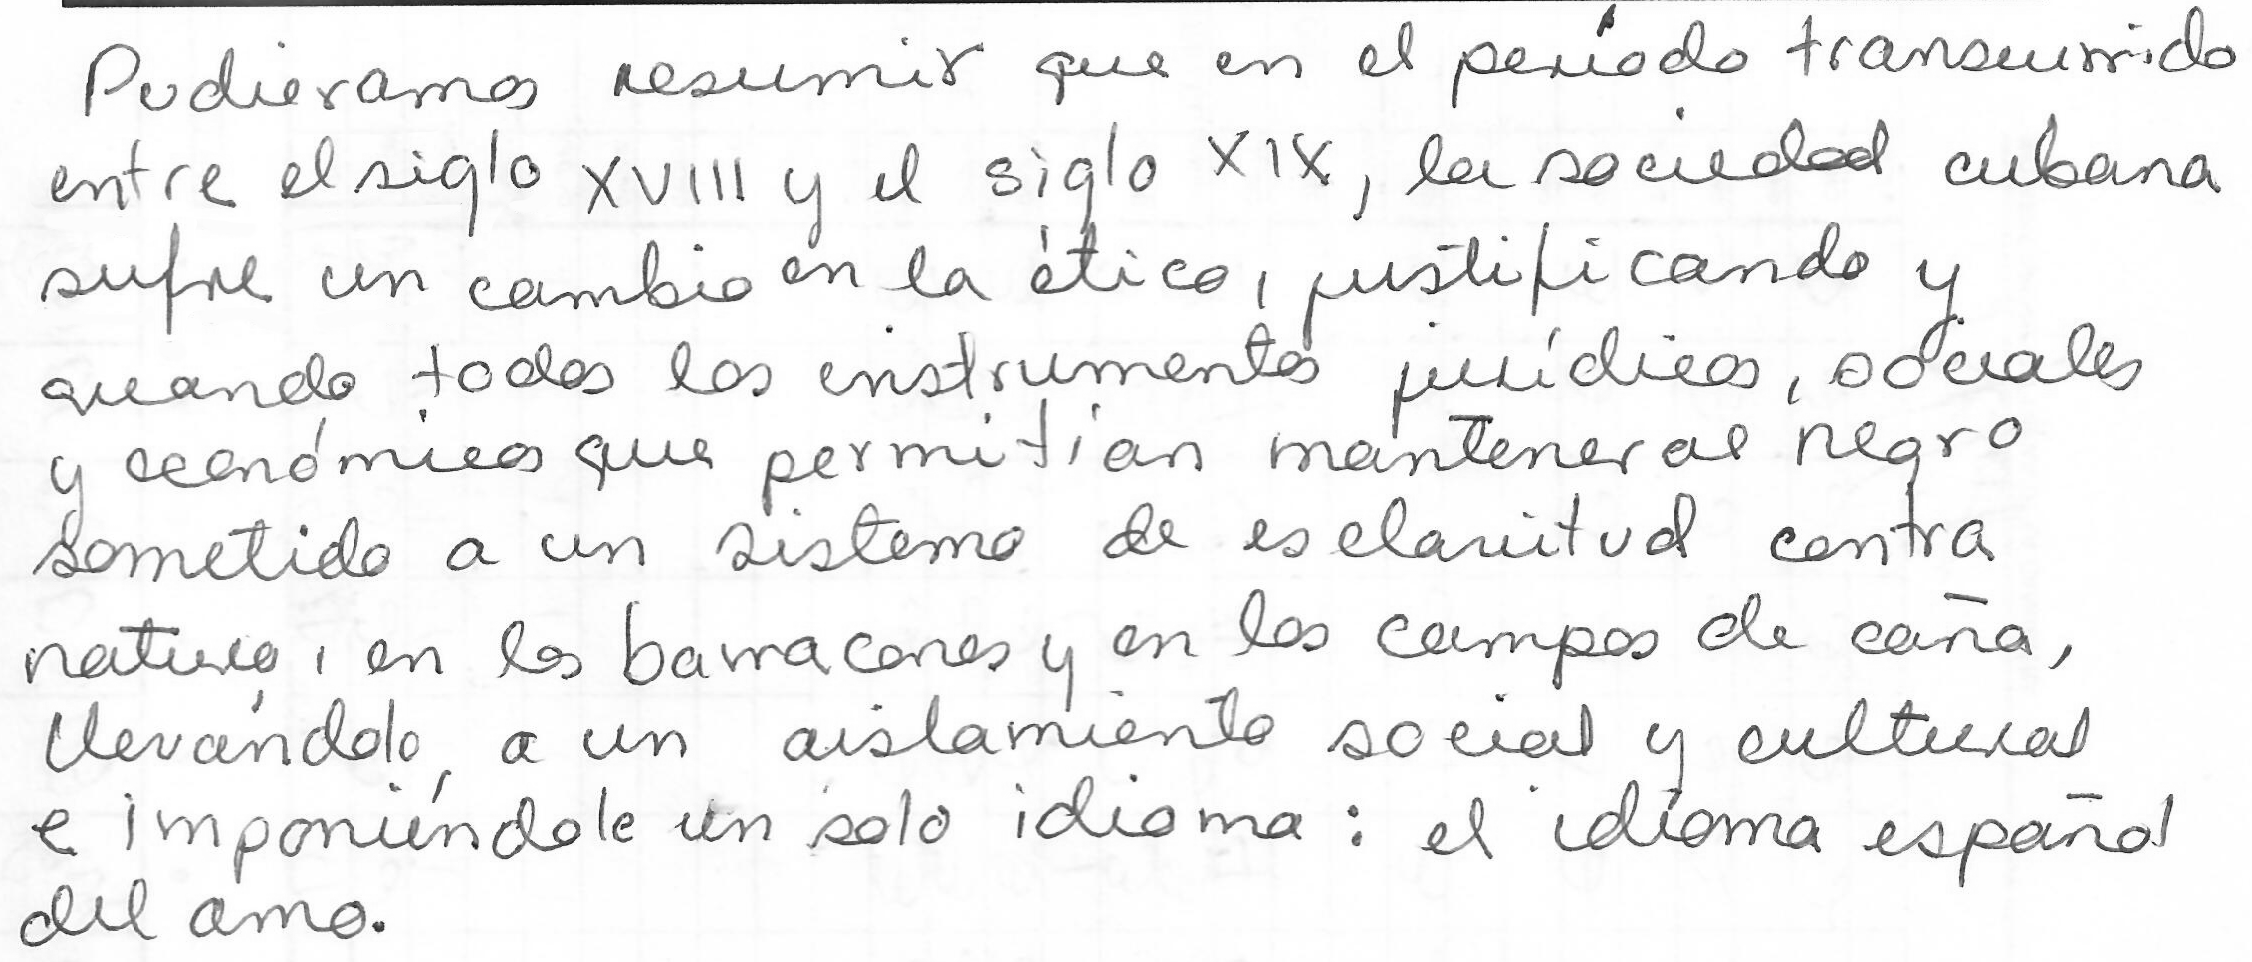 Pudieramos resumir que en el período transcurrido
entre el siglo XVIII y el siglo XIX, la sociedad cubana
sufre un cambio en la ética, justificando y
queando todos los instrumentos jurídicos, sociales
y económicos que permitían mantener al negro
sometido a un sistema de esclavitud contra
natura, en los barracones y en los campos de caña,
llevándolo, a un aislamiento social y cultural
e imponiéndole un solo idioma: el idioma español
del amo.